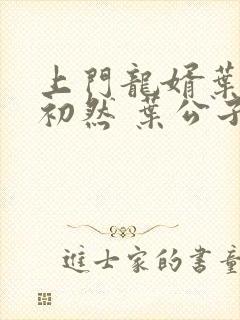 上門龍婿葉
初然 葉公子
進士家的書童